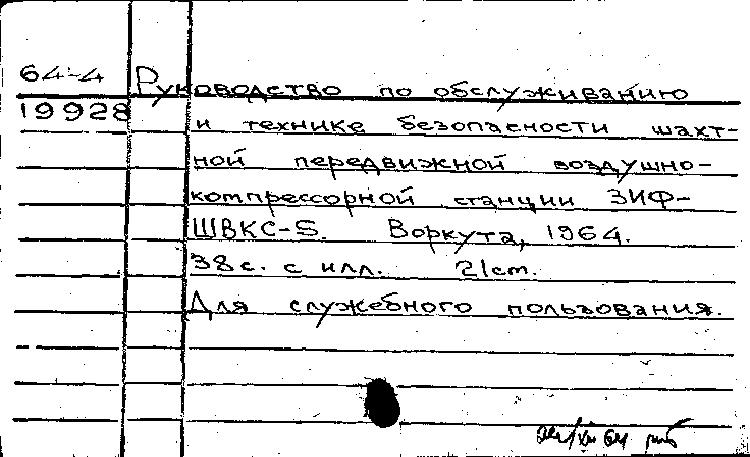 64-4 Руководство по обслуживанию
19928 и технике безопасности шахт-
ной передвижной воздушно-
компрессорной станции ЗИФ-
ШВКС-5. Воркута, 1964.
38 с. с илл. 21 cm.
Для служебного пользования.